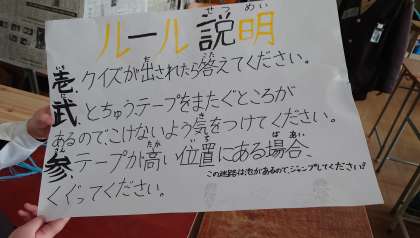 ルール説明
壱.クイズが出されたら答えてください。
弐.とちゅうテープをまたぐところが
あるので、こけないよう気をつけてください。
参.テープが高い位置にある場合、
くぐってください。
この迷路は池があるので、ジャンプしてください!